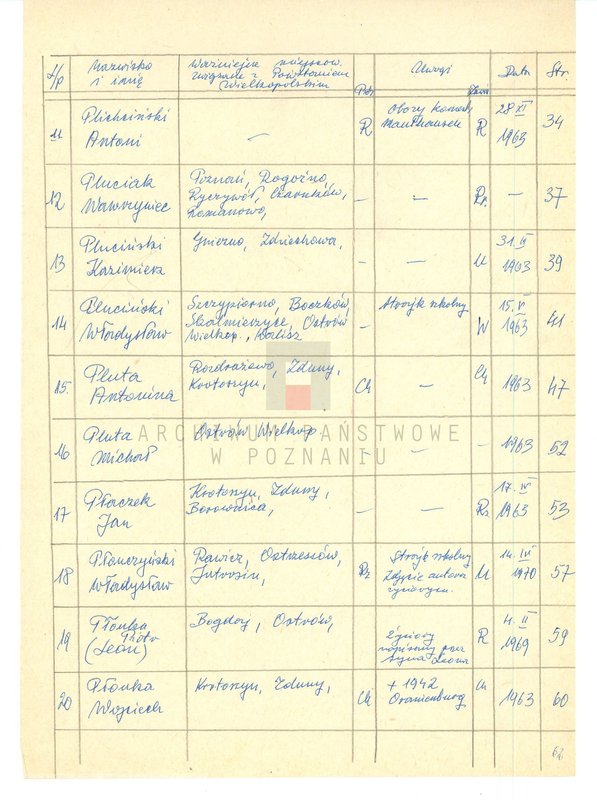 L/p Nazwisko i imię Ważniejsze miejscow. związane z Powstaniem Wielkopolskim Uwagi Data Str.
11 Plichciński Antoni — R Obozy koncentr. Mauthausen R 28 XI 1963 34
12 Pluciak Wawrzyniec Poznań, Rogoźno, Ryczywół, Czarnków, Romanowo, — — Rr. — 37
13 Pluciński Kazimierz Gniezno, Zdziechowa, — — U 31. III 1963 39
14 Pluciński Władysław Szczypiorno, Boczków, Skalmierzyce, Ostrów Wielkop., Kalisz — Strajk szkolny W 15. V 1963 41
15. Pluta Antonina Rozdrażewo, Zduny, Krotoszyn, Ch — Ch 1963 47
16 Pluta Michał Ostrów Wielkop. — — — 1963 52
17 Płaczek Jan Krotoszyn, Zduny, Borownica, — — Rz 17. IV 1963 53
18 Płończyński Władysław Rawicz, Ostrzeszów, Jutrosin, Rz Strajk szkolny Zdjęcie autora życiorysu. U 14. IV 1970 57
19 Płonka Piotr (Leon) Bogdaj, Ostrów, Życiorys napisany przez syna Leona R 4. II 1969 59
20 Płonka Wojciech Krotoszyn, Zduny, Ch + 1942 Oranienburg Ch 1963 60
62
ARCHIWUM PAŃSTWOWE
W POZNANIU